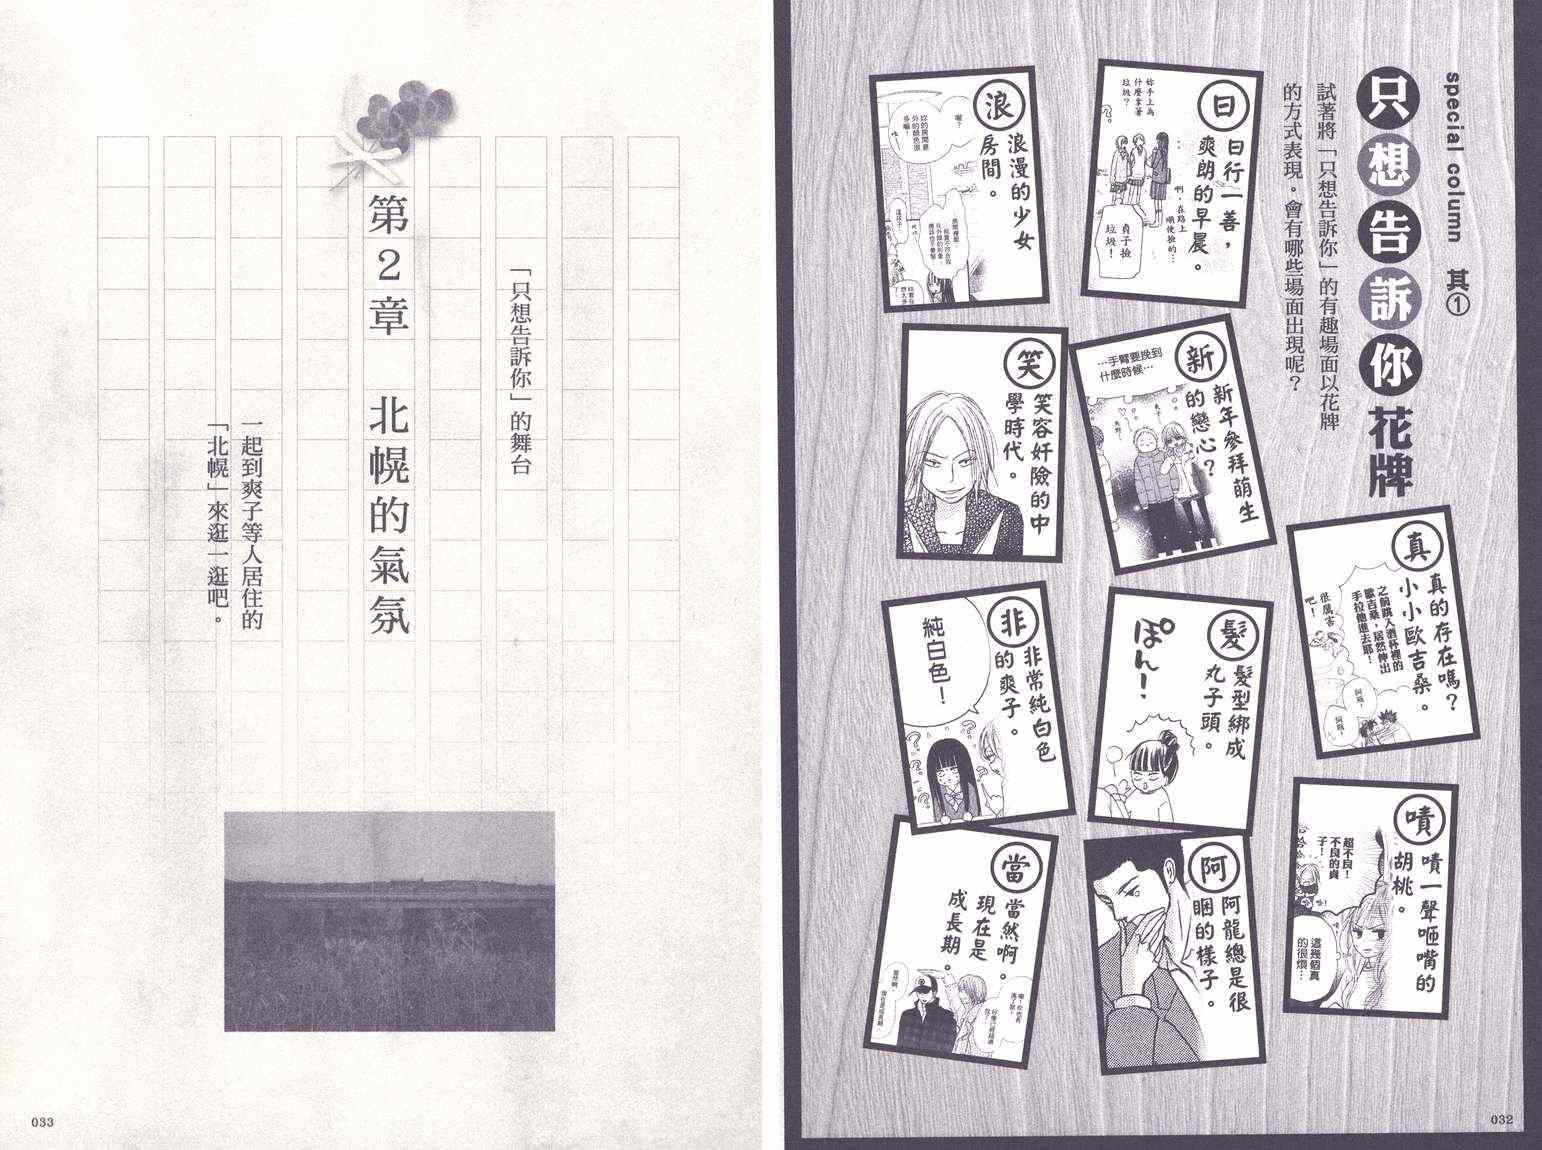 special column 其①
只想告訴你花牌
試著將「只想告訴你」的有趣場面以花牌
的方式表現。會有哪些場面出現呢？
真
真的存在嗎？
小小歐吉桑。
之前跳入酒杯裡的
歐吉桑，居然伸出
手拉他進去耶！
很厲害
吧！
阿飄！
阿飄！
嘖
嘖一聲咂嘴的
胡桃。
超不良！
不良的貞
子！
這幾個真
的很煩…
日
日行一善，
爽朗的早晨。
妳手上為
什麼拿著
垃圾？
啊，在路上
順便撿的…
貞子撿
垃圾！
新
新年參拜萌生
的戀心？
…手臂要挽到
什麼時候…
髮
髮型綁成
丸子頭。
ぽん！
阿
阿龍總是很
睏的樣子。
浪
浪漫的少女
房間。
喔？
妳的房間意
外的顏色很
多嘛！
笑
笑容奸險的中
學時代。
非
非常純白色
的爽子。
純白色！
當
當然啊。
現在是
成長期。
032
「只想告訴你」的舞台
第2章 北幌的氣氛
一起到爽子等人居住的
「北幌」來逛一逛吧。
033